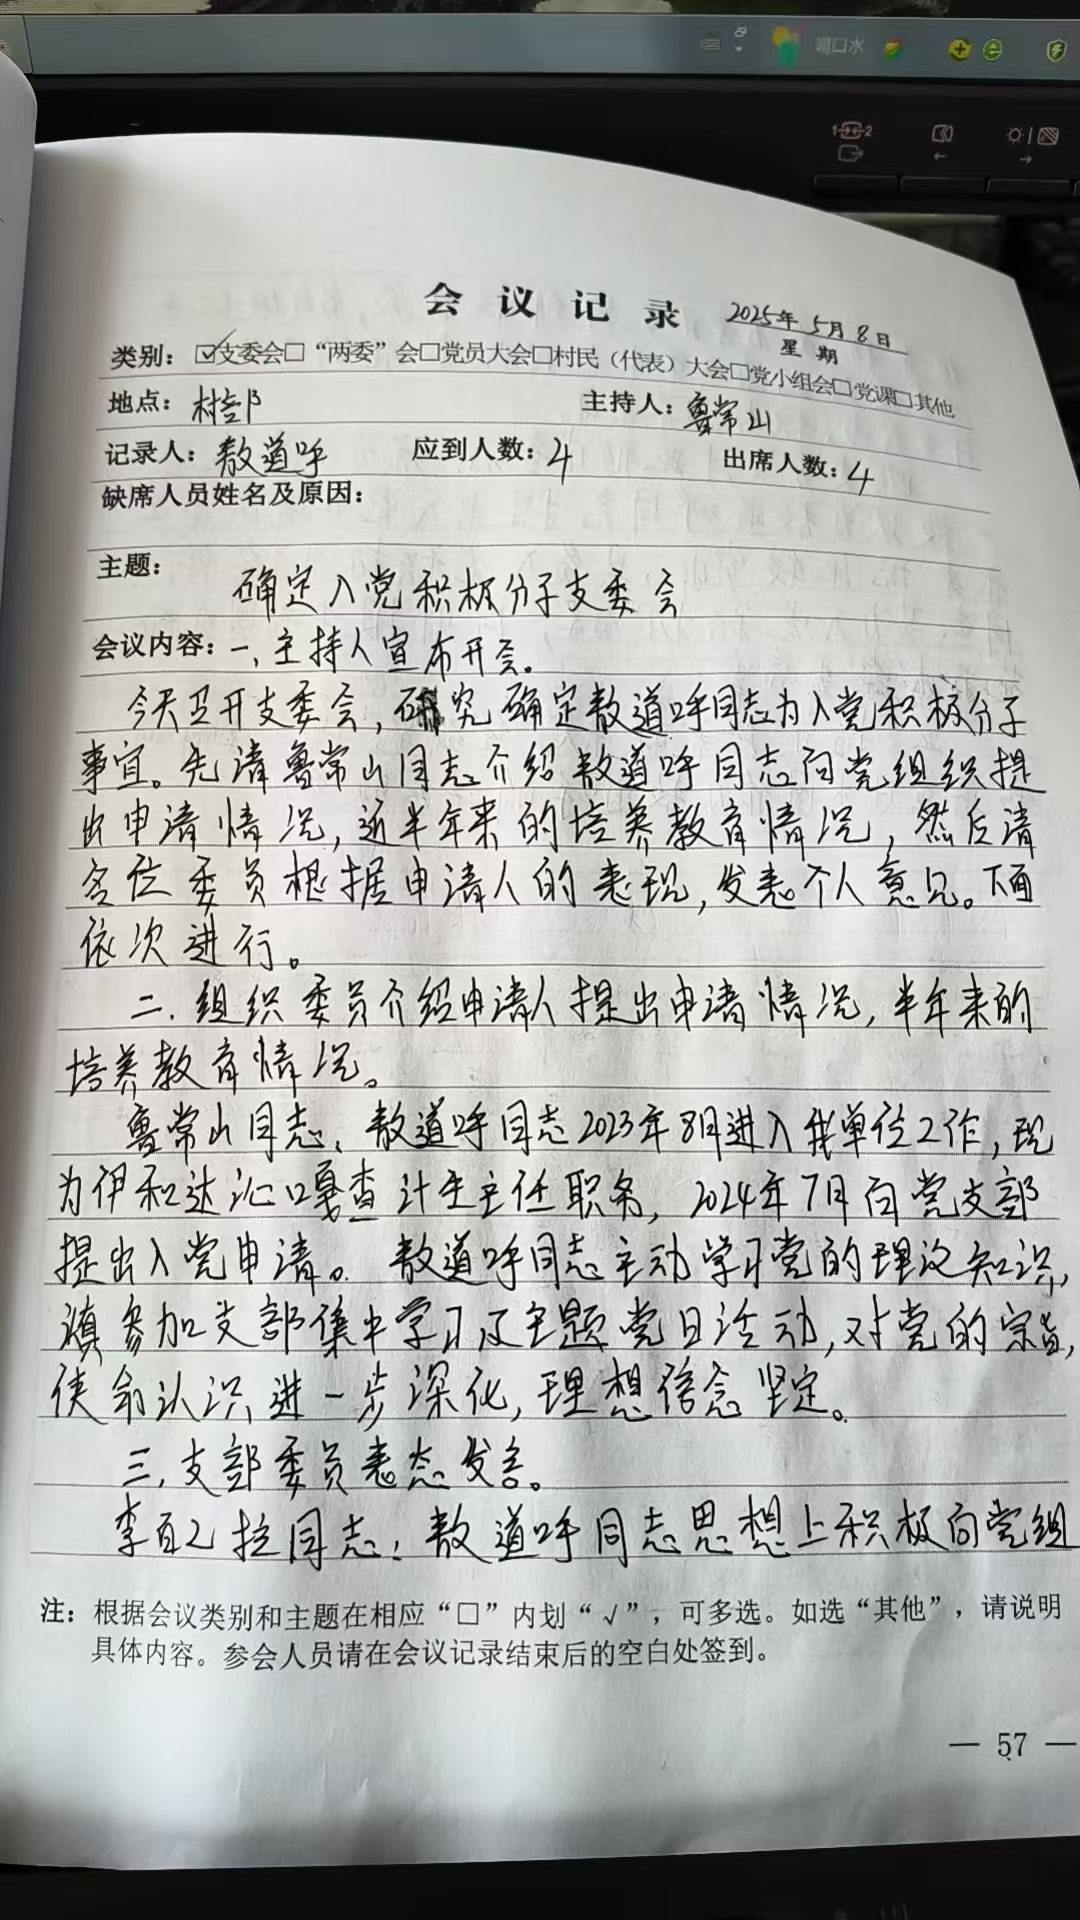 嘚口水
会议记录
2025年5月8日
星期
类别：☑支委会□“两委”会□党员大会□村民（代表）大会□党小组会□党课□其他
地点：村部 主持人：鲁常山
记录人：敖道呼 应到人数：4 出席人数：4
缺席人员姓名及原因：
主题：
确定入党积极分子支委会
会议内容：一、主持人宣布开会。
今天召开支委会，研究确定敖道呼同志为入党积极分子
事宜。先请鲁常山同志介绍敖道呼同志向党组织提
出申请情况，近半年来的培养教育情况，然后请
各位委员根据申请人的表现，发表个人意见。下面
依次进行。
二、组织委员介绍申请人提出申请情况，半年来的
培养教育情况。
鲁常山同志：敖道呼同志2023年8月进入我单位工作，现
为伊和达沁嘎查计生主任职务，2024年7月向党支部
提出入党申请。敖道呼同志主动学习党的理论知识，
参加支部集中学习及主题党日活动，对党的宗旨，
使命认识进一步深化，理想信念坚定。
三、支部委员表态发言。
李百乙拉同志：敖道呼同志思想上积极向党组
注：根据会议类别和主题在相应“□”内划“√”，可多选。如选“其他”，请说明
具体内容。参会人员请在会议记录结束后的空白处签到。
— 57 —